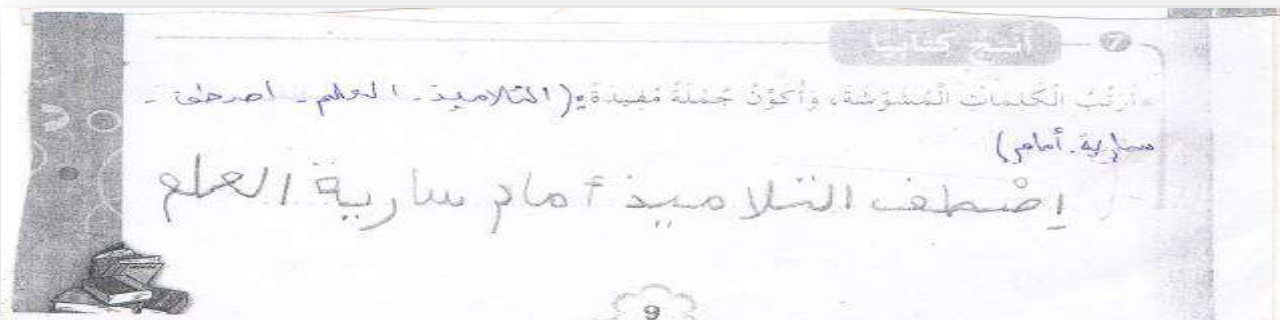 7 أنتج كتابيا
أُرَتِّبُ الْكَلِمَاتِ الْمُشَوَّشَةَ، وَأُكَوِّنُ جُمْلَةً مُفِيدَةً: (التلاميذ - العلم - اصطف -
سارية - أمام)
اِصْطف التلاميذ أمام سارية العلم
9